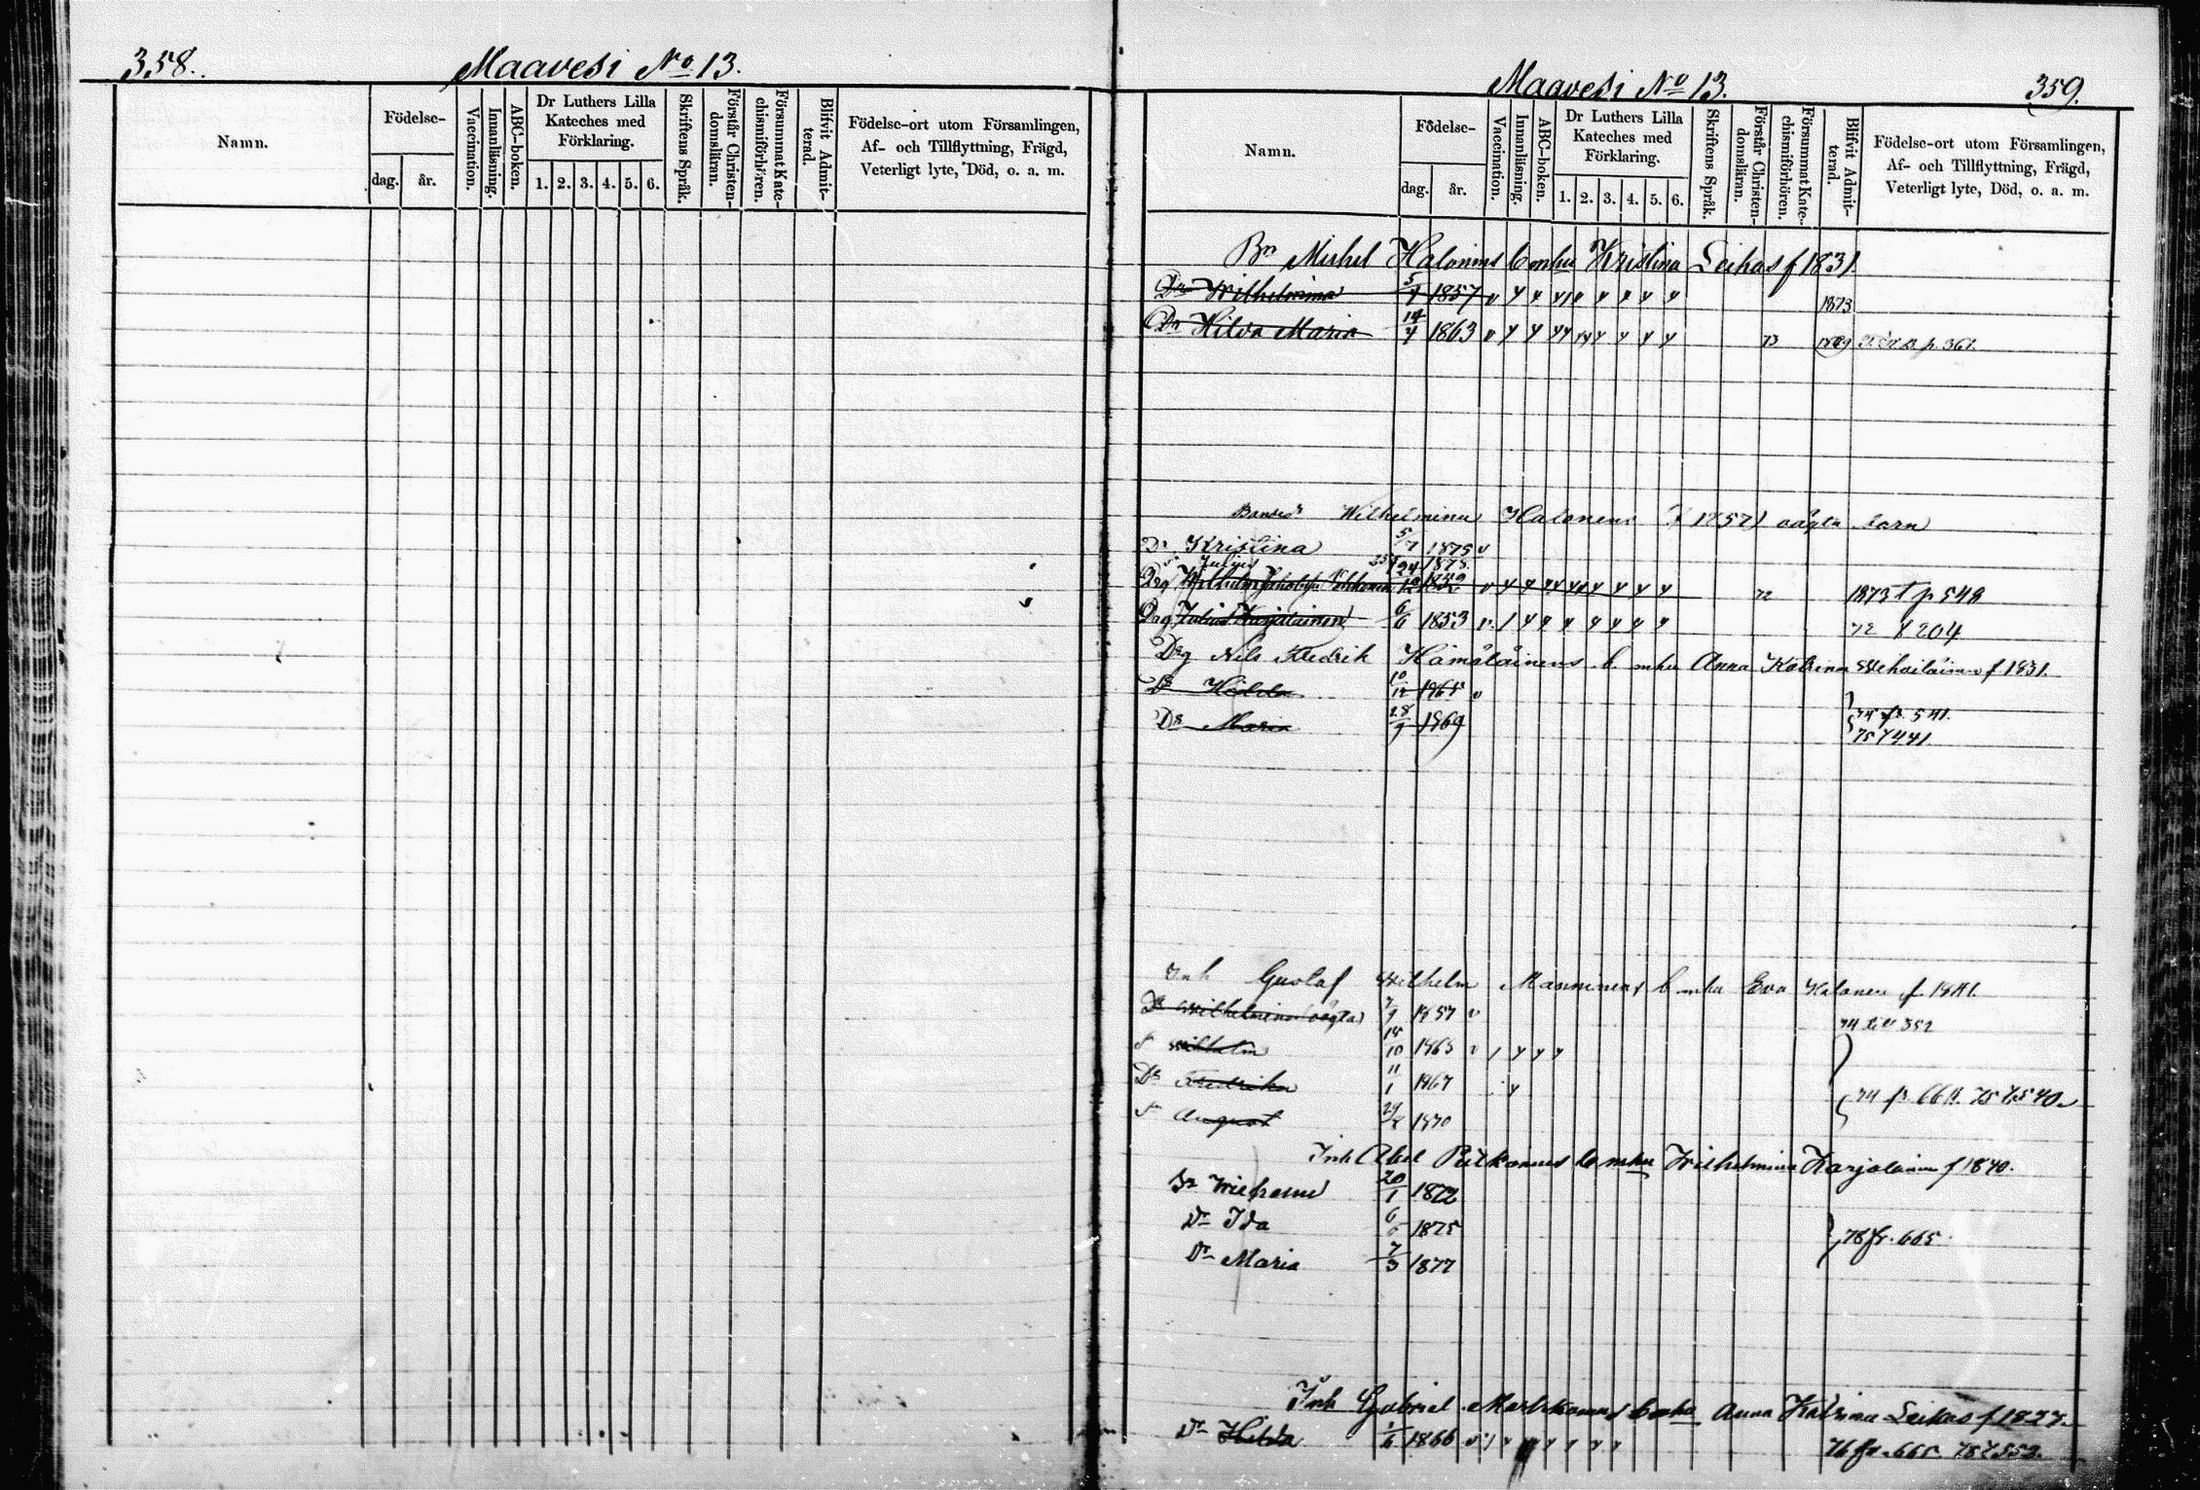 358.
Maavesi No 13.
Namn.
Födelse-
dag.
år.
Vaccination.
Innanläsning.
ABC-boken.
Dr Luthers Lilla
Kateches med
Förklaring.
1. 2. 3. 4. 5. 6.
Skriftens Språk.
Förstår Christen-
domsläran.
Försummat Kate-
chismiförhören.
Blifvit Admit-
terad.
Födelse-ort utom Församlingen,
Af- och Tillflyttning, Frägd,
Veterligt lyte, Död, o. a. m.
Maavesi No 13.
359.
Namn.
Födelse-
dag.
år.
Vaccination.
Innanläsning.
ABC-boken.
Dr Luthers Lilla
Kateches med
Förklaring.
1. 2. 3. 4. 5. 6.
Skriftens Språk.
Förstår Christen-
domsläran.
Försummat Kate-
chismiförhören.
Blifvit Admit-
terad.
Födelse-ort utom Församlingen,
Af- och Tillflyttning, Frägd,
Veterligt lyte, Död, o. a. m.
Bn Michel Halonens b mhu Kristina Leikas f 1831.
Dr Wilhelmina 5/9 1857 1873
Dr Hilda Maria 14/4 1863 73 p. 361.
Wilhelmina Halonens oägta barn
Dr Kristina 5/7 1875
1878
Drg Wilhelm 1873 p 548
Drg Julius Karjalainen 6/6 1853 72 204
Drg Nils Fredrik Hämäläinens b mhu Anna Katrina f 1831.
Dr Hilda 10/12 1865
Dr Maria 28/9 1869 74 p. 541.
75 441
Inh Gustaf Wilhelm Manninens b mhu Eva Halonen f 1841.
Dr Wilhelmina (oägta) 7/9 1857 74 till 352
S Wilhelm 18/10 1863
Dr Fredrika 11/1 1867 74 p 664. 75 540
S August 24/8 1870
Inh Abel Pitkonens b mhu Wilhelmina Karjalain f 1840.
Sn Wilhelm 20/1 1872
Dr Ida 6/6 1875 78 fr. 665.
Dr Maria 7/3 1877
Inh Gabriel Markkanens b mhu Anna Katrina Leikas f 1827.
Dr Hilda 1/6 1866 76 fr. 665. 78 552.